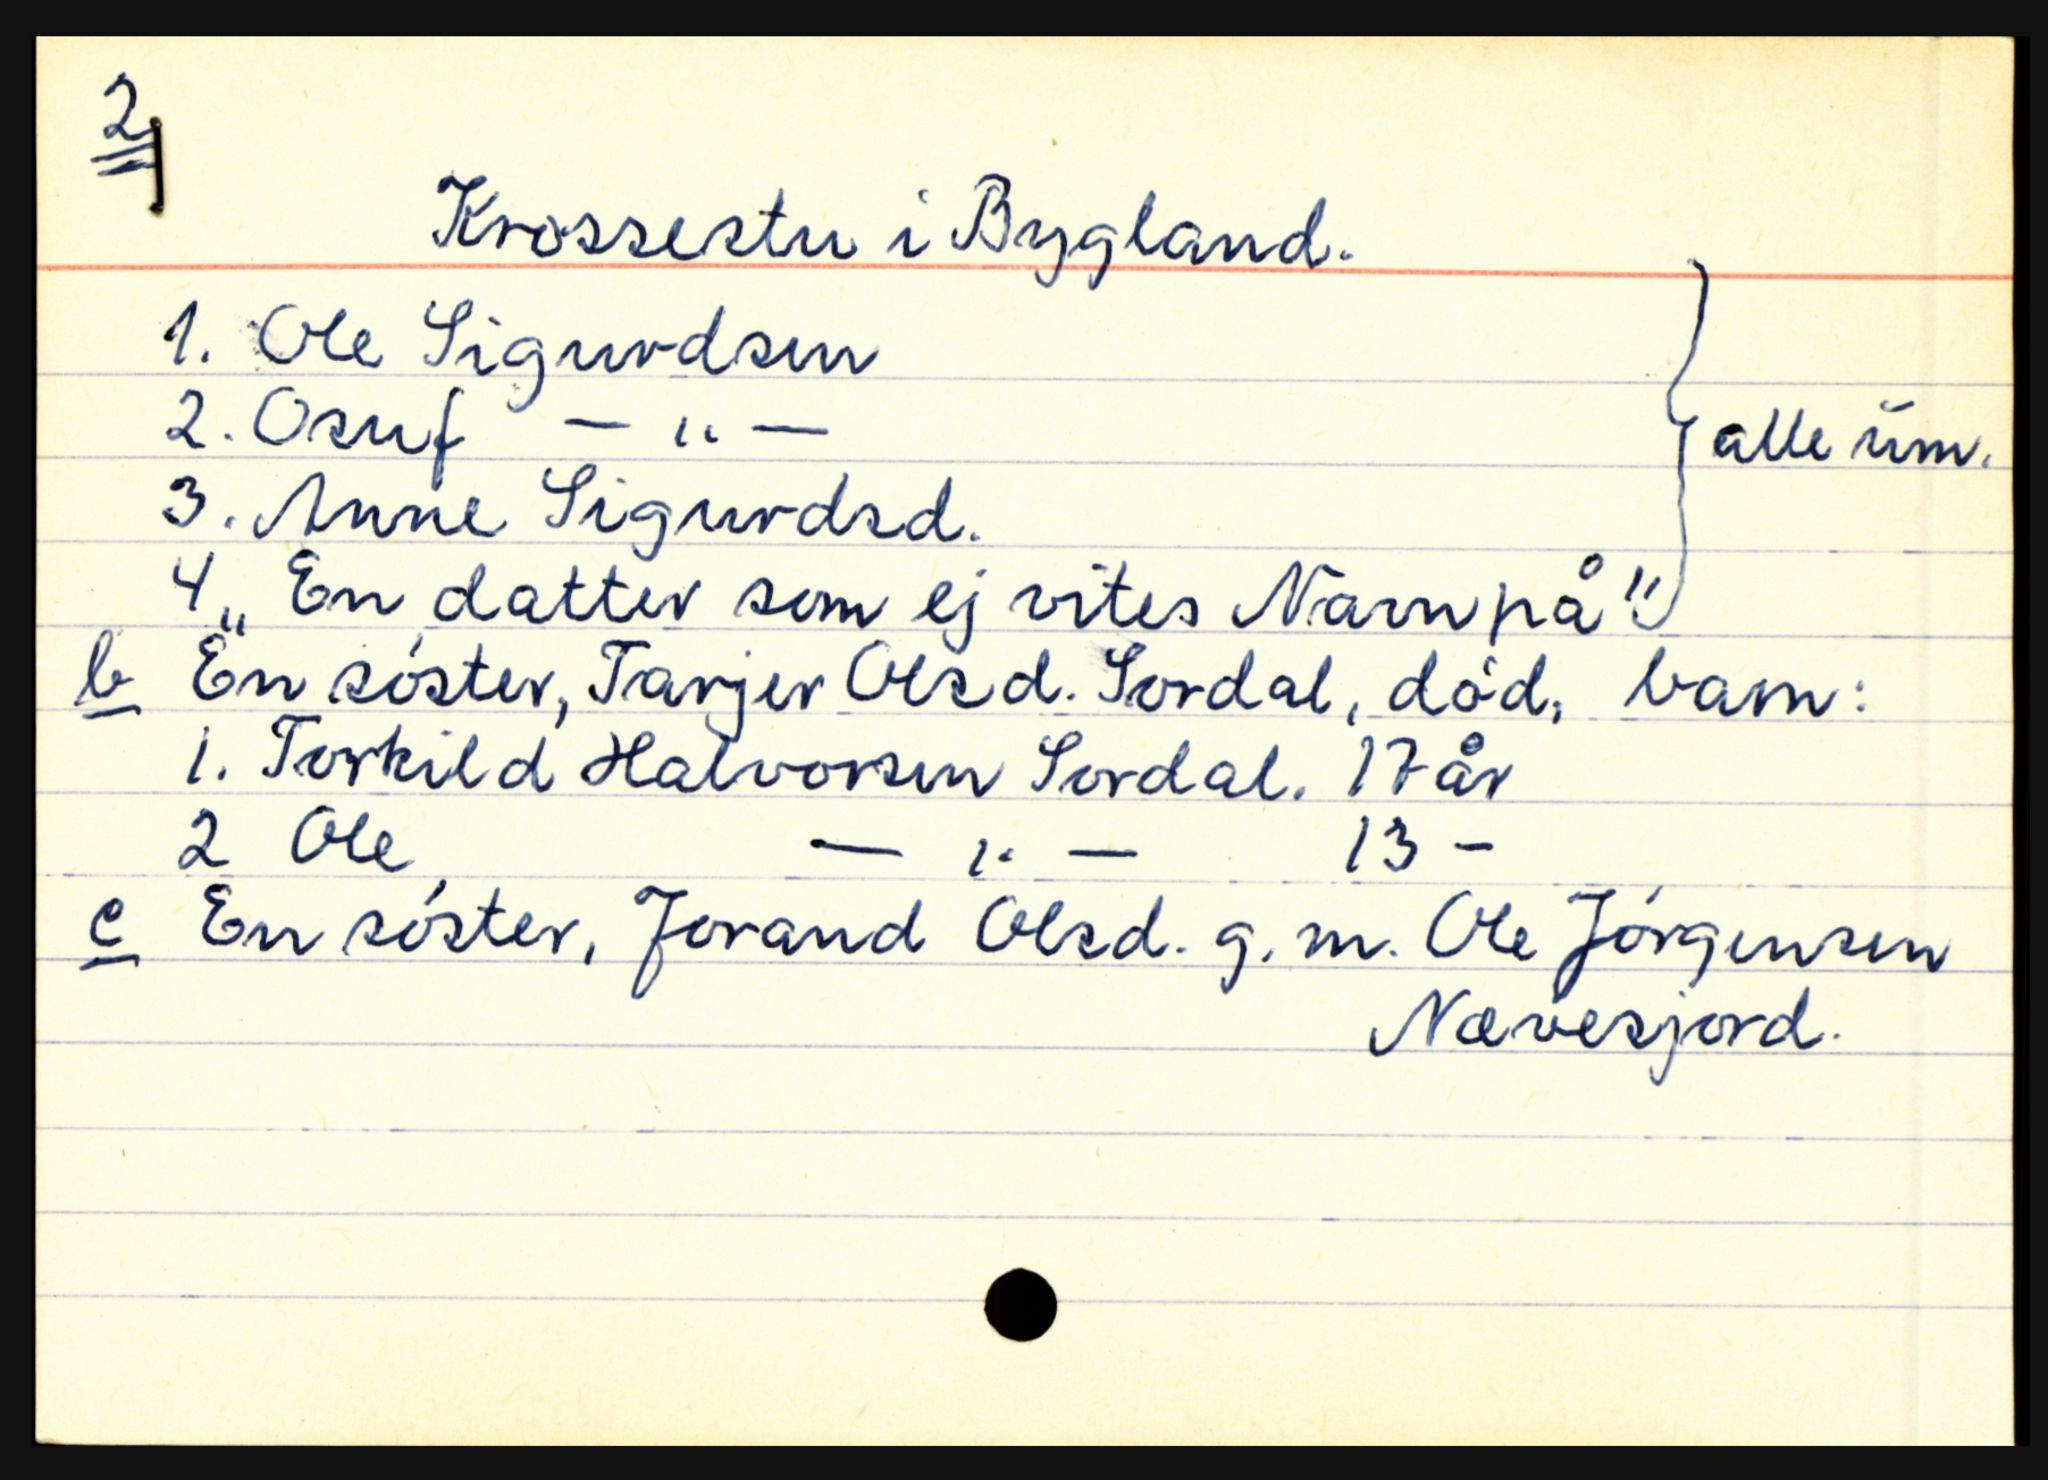 2
Krossestu i Bygland.
1. Ole Sigurdsen
2. Osuf — " —
3. Anne Sigurdsd.
alle um.
4 „En datter som ej vites Navn på"
b En søster, Tarjer Olsd. Sordal, død, barn:
1. Torkild Halvorsen Sordal. 17 år
2 Ole — " — 13 -
c En søster, Jorand Olsd. g. m. Ole Jørgensen
Nævesjord.